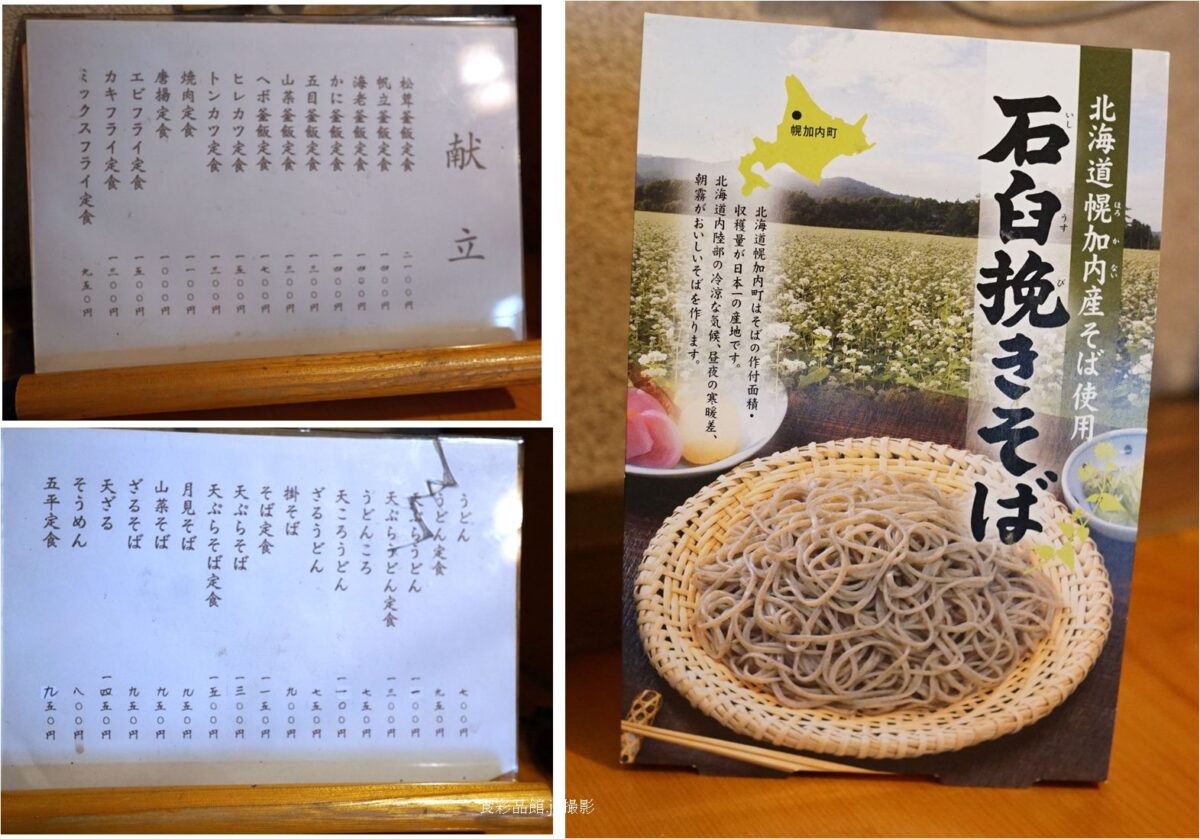 献立
松茸釜飯定食 二一〇〇円
帆立釜飯定食 一四〇〇円
海老釜飯定食 一四〇〇円
かに釜飯定食 一四〇〇円
五目釜飯定食 一三〇〇円
山菜釜飯定食 一三〇〇円
ヘボ釜飯定食 一七〇〇円
ヒレカツ定食 一五〇〇円
トンカツ定食 一三〇〇円
焼肉定食 一一〇〇円
唐揚定食 一〇〇〇円
エビフライ定食 一五〇〇円
カキフライ定食 一三〇〇円
ミックスフライ定食 九五〇円
うどん 七〇〇円
うどん定食 九五〇円
天ぷらうどん 一一〇〇円
天ぷらうどん定食 一三〇〇円
うどんころ 七五〇円
天ころうどん 一一〇〇円
ざるうどん 七五〇円
掛そば 九〇〇円
そば定食 一一五〇円
天ぷらそば 一三〇〇円
天ぷらそば定食 一五〇〇円
月見そば 九五〇円
山菜そば 九五〇円
ざるそば 九五〇円
天ざる 一四五〇円
そうめん 八〇〇円
五平定食 九五〇円
北海道幌加内産そば使用
ほろ か ない
石臼挽きそば
いし うす び
幌加内町
北海道幌加内町はそばの作付面積・
収穫量が日本一の産地です。
北海道内陸部の冷涼な気候、昼夜の寒暖差、
朝霧がおいしいそばを作ります。
食彩品館.jp撮影